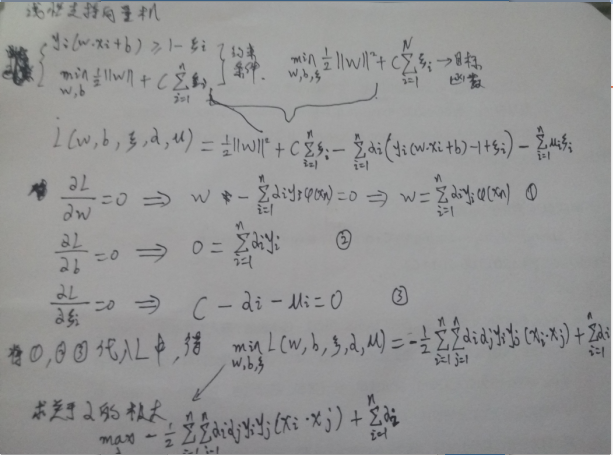 线性支持向量机
yi(w·xi+b) ≥ 1-ξi
min w,b ½||w|| + C∑i=1^n ξi } 约束条件. min w,b,ξ ½||w||² + C∑i=1^N ξi → 目标函数
L(w,b,ξ,α,μ) = ½||w||² + C∑i=1^n ξi - ∑i=1^n αi(yi(w·xi+b)-1+ξi) - ∑i=1^n μiξi
∂L/∂w = 0 ⇒ w - ∑i=1^n αiyiφ(xn) = 0 ⇒ w = ∑i=1^n αiyiφ(xn) ①
∂L/∂b = 0 ⇒ 0 = ∑i=1^n αiyi ②
∂L/∂ξi = 0 ⇒ C - αi - μi = 0 ③
将①,②③代入L中,得 min w,b,ξ L(w,b,ξ,α,μ) = -½∑i=1^n∑j=1^n αiαjyiyj(xi·xj) + ∑i=1^n αi
求关于α的极大
max - ½∑i=1^n∑j=1^n αiαjyiyj(xi·xj) + ∑i=1^n αi